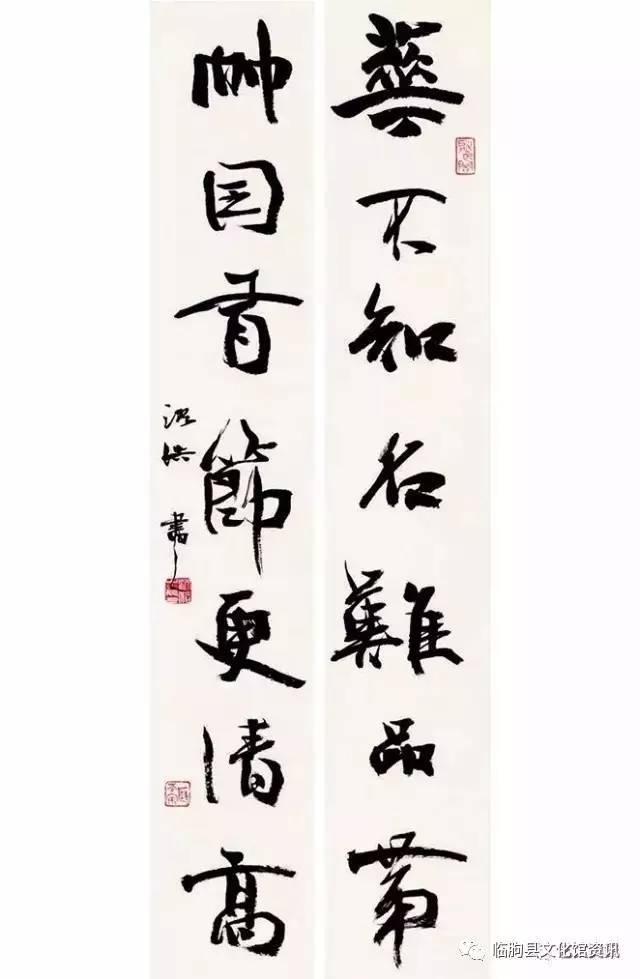 華不知名難品第
竹因有節更清高
書
临朐县文化馆资讯